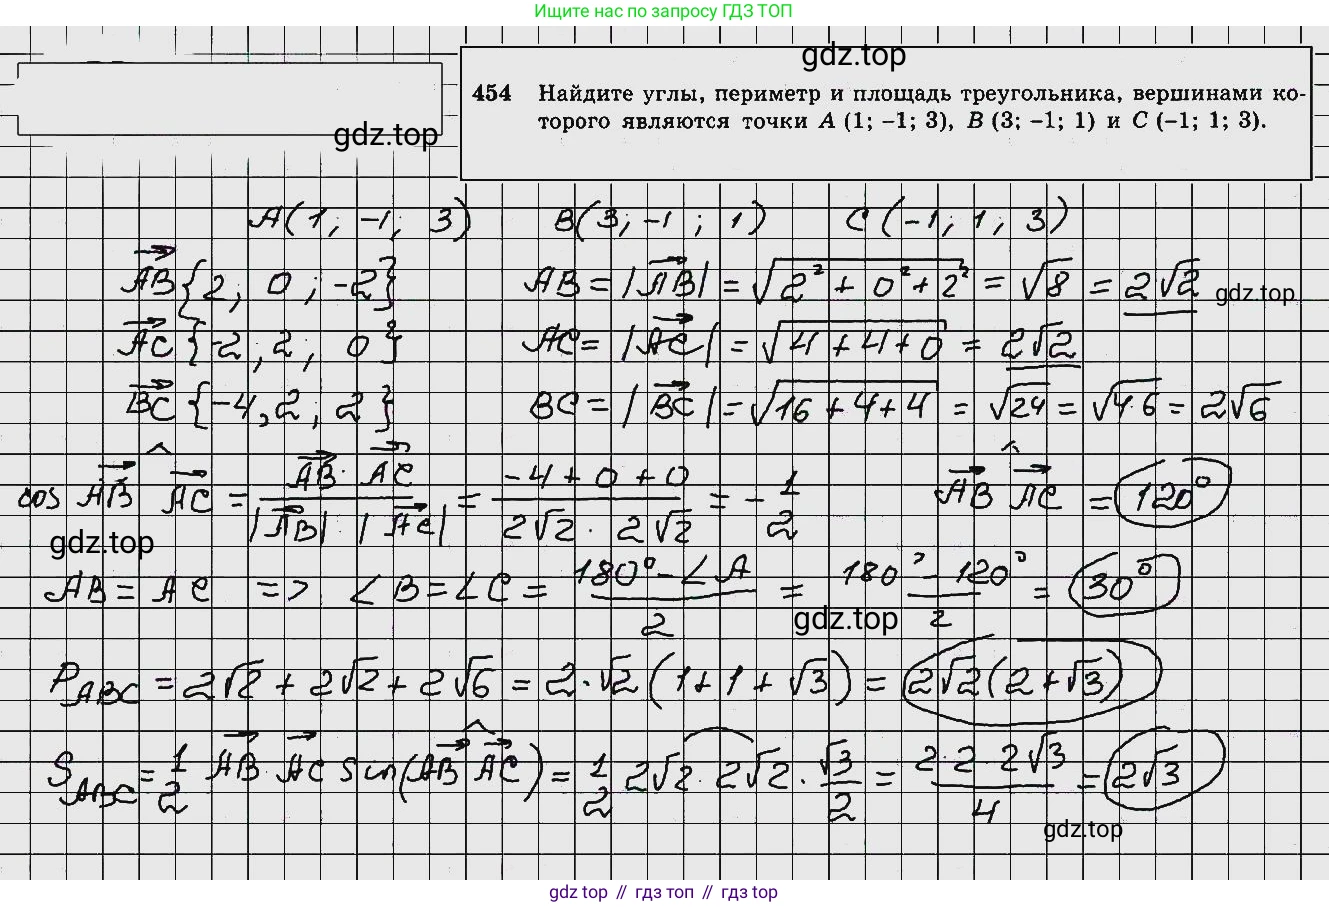 Ищите нас по запросу ГДЗ ТОП
gdz.top
454 Найдите углы, периметр и площадь треугольника, вершинами ко-
торого являются точки A (1; −1; 3), B (3; −1; 1) и C (−1; 1; 3).
gdz.top
A(1; -1; 3) B(3; -1; 1) C(-1; 1; 3)
AB{2; 0; -2} AB = |AB| = √2² + 0² + 2² = √8 = 2√2
gdz.top
AC{-2; 2; 0} AC = |AC| = √4+4+0 = 2√2
BC{-4, 2; 2} BC = |BC| = √16+4+4 = √24 = √4·6 = 2√6
cos AB AC = AB · AC / |AB| |AC| = -4+0+0 / 2√2 · 2√2 = -1/2 AB AC = 120°
gdz.top
AB = AC => ∠B = ∠C = 180° - ∠A / 2 = 180° - 120° / 2 = 30°
gdz.top
P ABC = 2√2 + 2√2 + 2√6 = 2·√2 (1+1+√3) = 2√2(2+√3)
S ABC = 1/2 AB · AC sin(AB AC) = 1/2 2√2 · 2√2 · √3/2 = 2·2·2√3 / 4 = 2√3
gdz.top
gdz top // гдз топ // gdz top